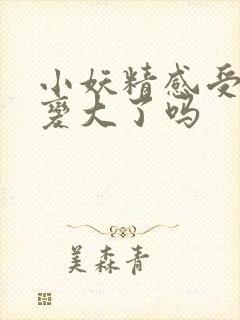 小妖精感受
变大了吗
美森青